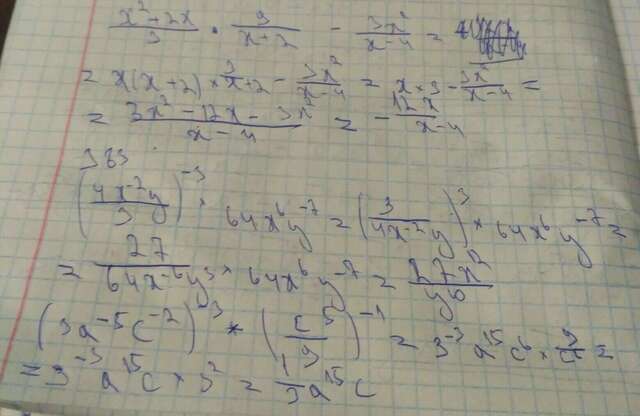 (x²+2x)/3 · 9/(x+2) − 3x²/(x−4) =
= x(x+2) × 3/(x+2) − 3x²/(x−4) = x × 3 − 3x²/(x−4) =
= (3x² − 12x − 3x²)/(x−4) = − 12x/(x−4)
383
(4x⁻²y/3)⁻³ × 64x⁶y⁻⁷ = (3/(4x⁻²y))³ × 64x⁶y⁻⁷ =
= 27/(64x⁻⁶y³) × 64x⁶y⁻⁷ = 27x¹²/y¹⁰
(3a⁻⁵c⁻²)⁻³ * (c⁵/9)⁻¹ = 3⁻³a¹⁵c⁶ × 9/c⁵ =
= 3⁻³a¹⁵c × 3² = 1/3 a¹⁵c